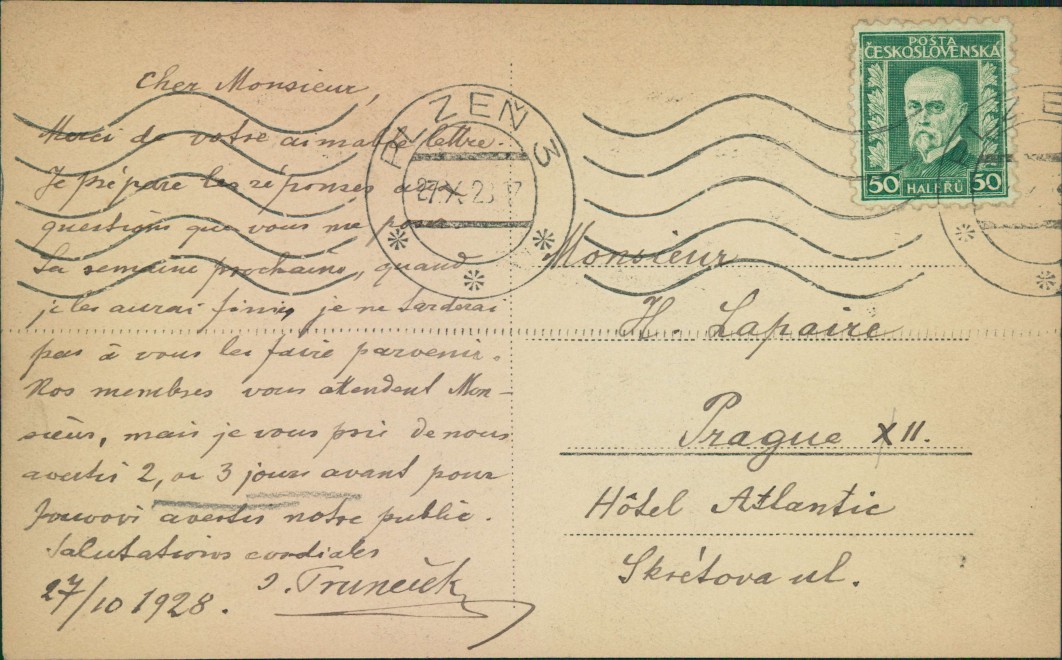 Cher Monsieur,
Merci de votre aimable lettre.
Je prépare les réponses aux
questions que vous me
La semaine prochaine, quand
je les aurai finies je ne tarderai
pas à vous les faire parvenir.
Nos membres vous attendent Mon-
sieur, mais je vous prie de nous
avertir 2, ou 3 jours avant pour
avertir notre public.
Salutations cordiales
27/10 1928.
PLZEŇ 3
27.X.28 17
POŠTA
ČESKOSLOVENSKÁ
50 HALÉŘŮ 50
Monsieur
H. Lapaire
Prague XII.
Hôtel Atlantic
Skrétova ul.